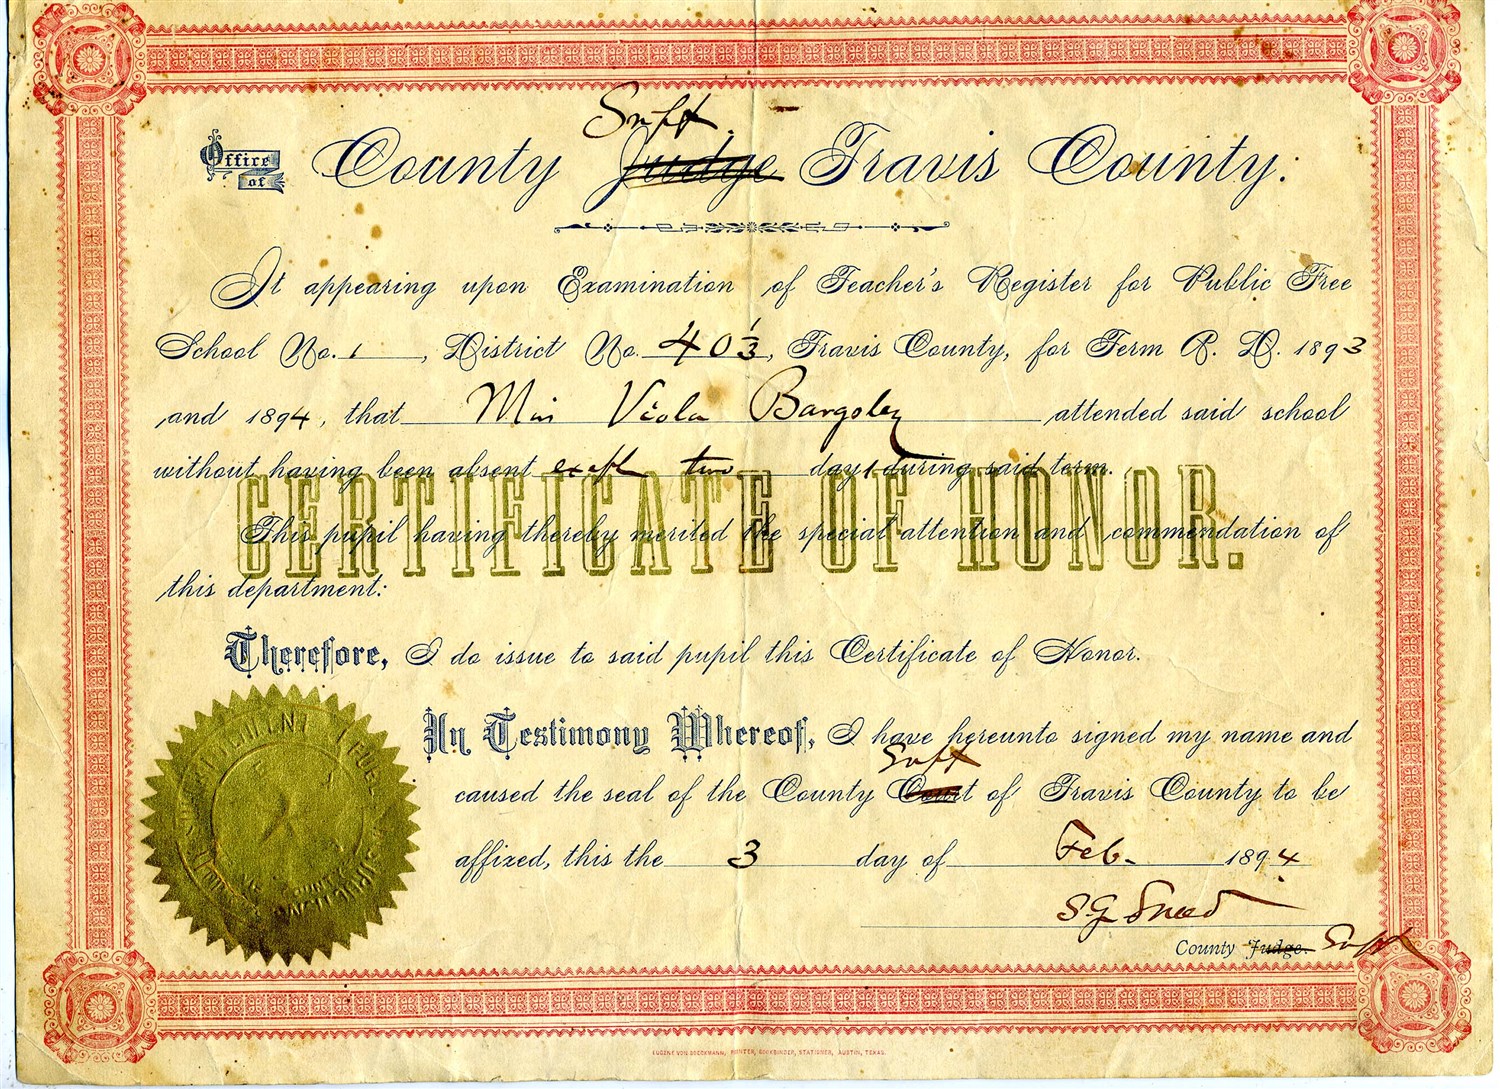 Supt.
Office of County Judge Travis County:
It appearing upon Examination of Teacher's Register for Public Free
School No. 1, District No. 40 1/3, Travis County, for Term A. D. 1893
and 1894, that Miss Viola Bargsley attended said school
without having been absent exept two days during said term.
CERTIFICATE OF HONOR.
This pupil having thereby merited the special attention and commendation of
this department:
Therefore, I do issue to said pupil this Certificate of Honor.
In Testimony Whereof, I have hereunto signed my name and
Supt
caused the seal of the County Court of Travis County to be
affixed, this the 3 day of Feb. 1894.
S G Sneed
County Judge. Supt
COUNTY
EUGENE VON BOECKMANN, PRINTER, BOOKBINDER, STATIONER, AUSTIN, TEXAS.